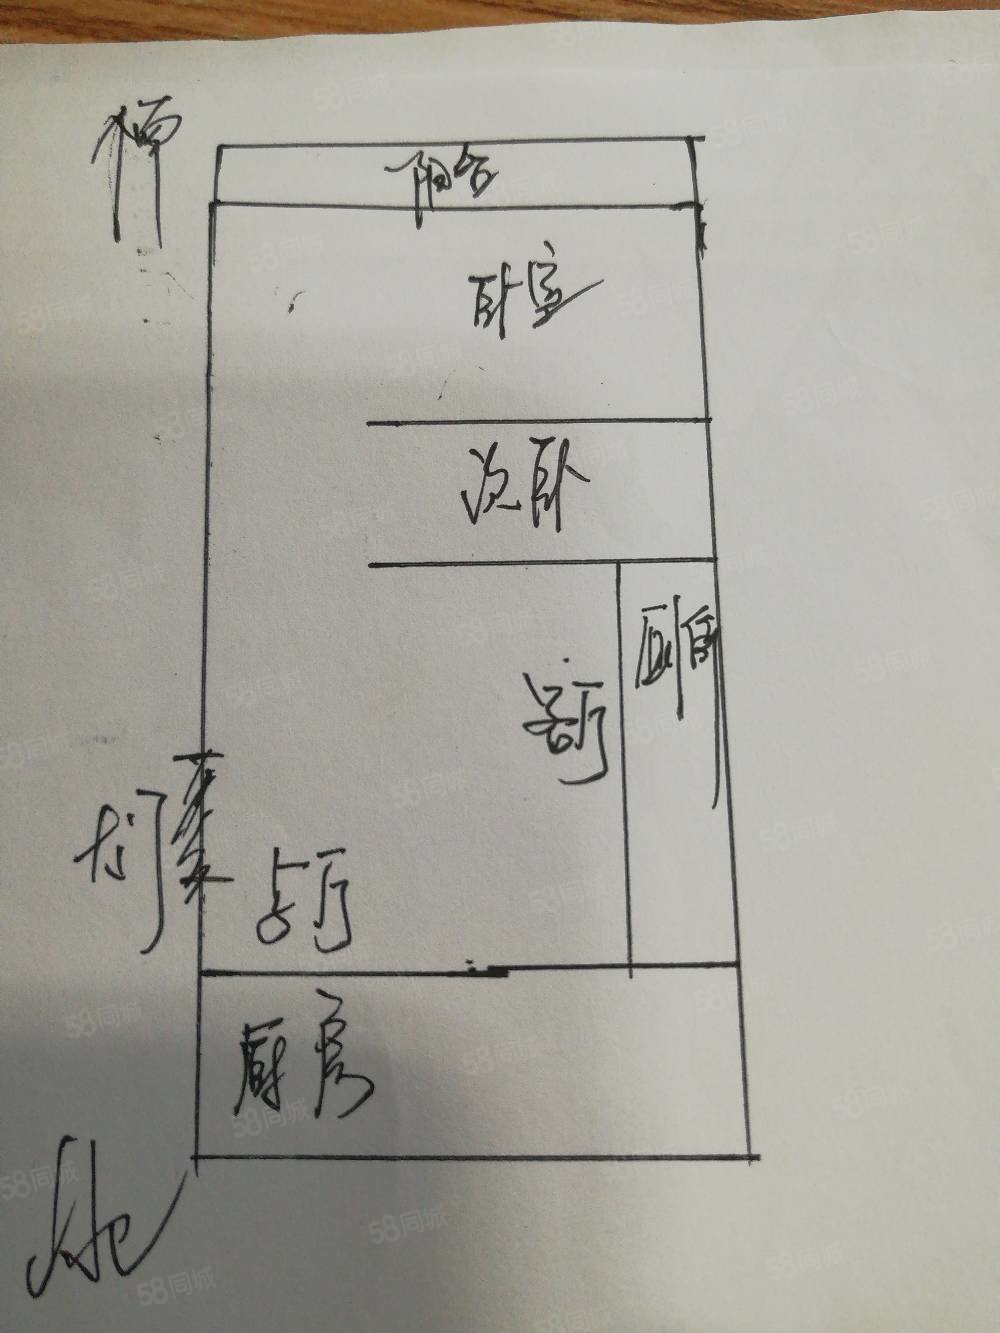 南
阳台
卧室
次卧
客厅
厕所
大门
客厅
厨房
北
58同城